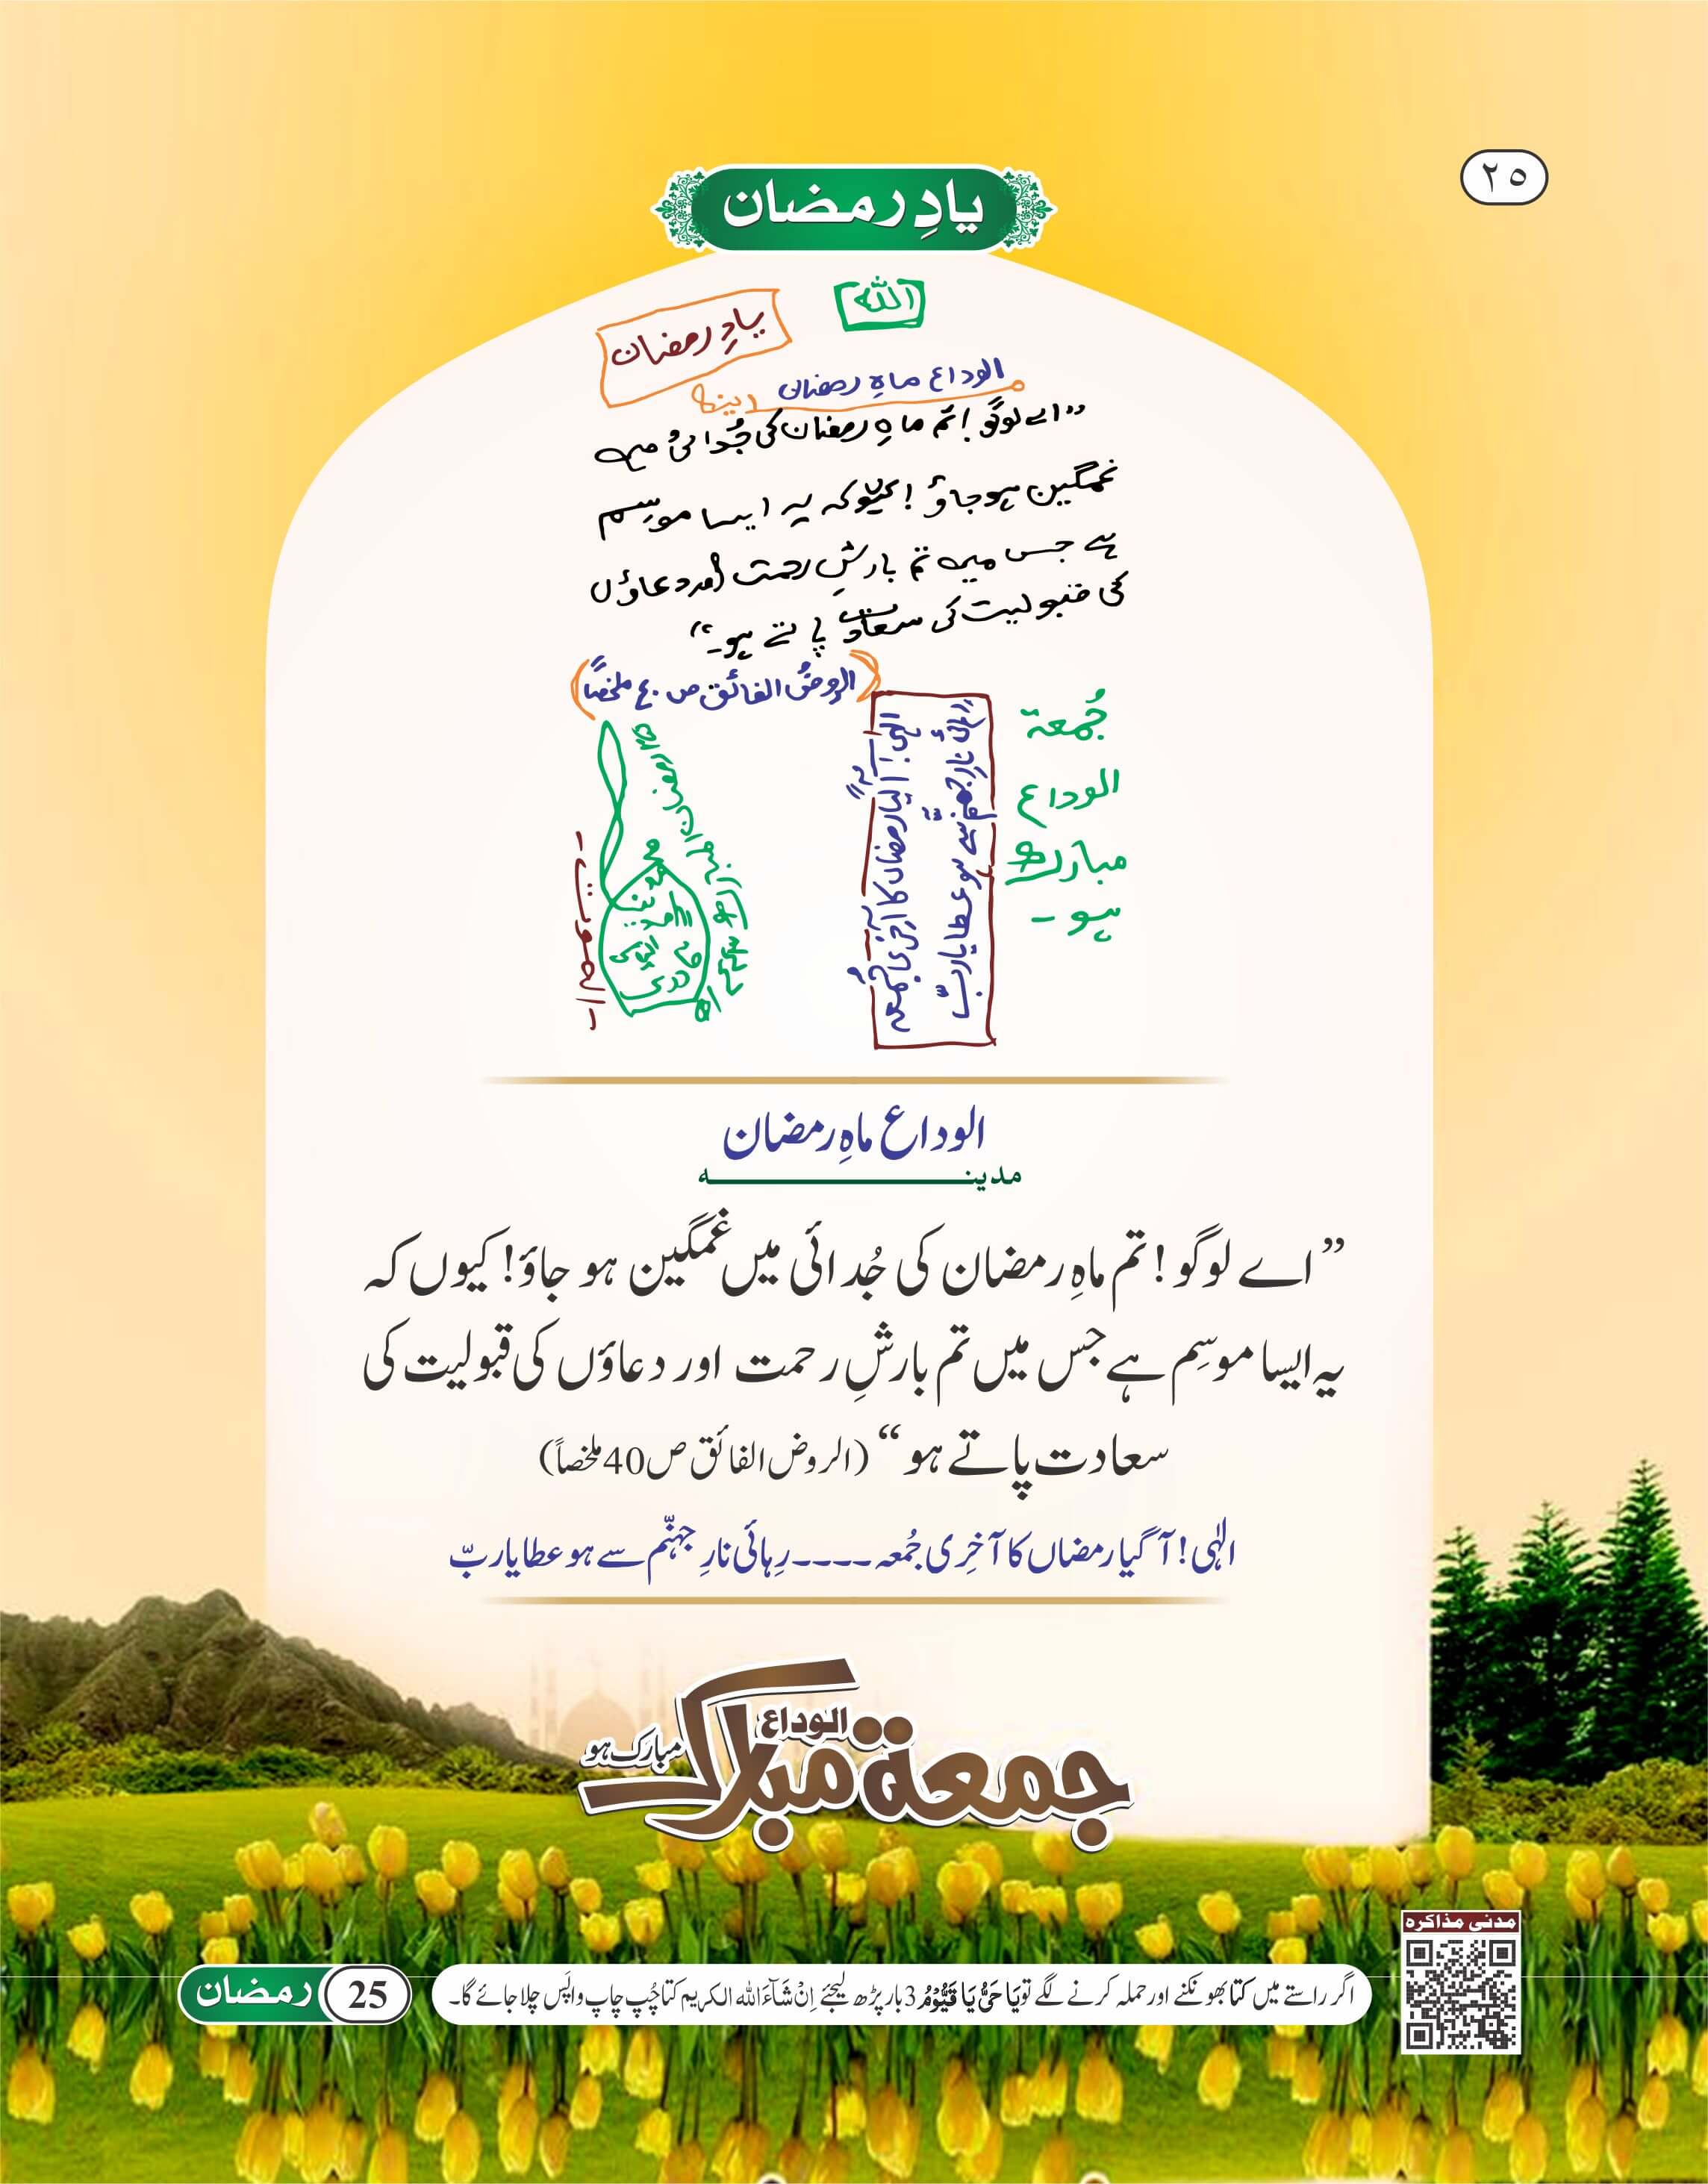 ۲۵
یادِ رمضان
اللہ
یادِ رمضان
الوداع ماہِ رمضان
”اے لوگو! تم ماہِ رمضان کی جُدائی میں
غمگین ہو جاؤ! کیوں کہ یہ ایسا موسِم
ہے جس میں تم بارشِ رحمت اور دعاؤں
کی قبولیت کی سعادت پاتے ہو۔“
(الروض الفائق ص ٤٠ ملخصاً)
جُمعۃ
الوداع
مبارک
ہو -
الٰہی! آ گیا رمضاں کا آخری جُمعہ
رِہائی نارِ جہنّم سے ہو عطا یا ربّ
الوداع ماہِ رمضان
مدینہ
”اے لوگو! تم ماہِ رمضان کی جُدائی میں غمگین ہو جاؤ! کیوں کہ
یہ ایسا موسِم ہے جس میں تم بارشِ رحمت اور دعاؤں کی قبولیت کی
سعادت پاتے ہو“ (الروض الفائق ص40 ملخصاً)
الٰہی! آ گیا رمضاں کا آخِری جُمعہ ---- رِہائی نارِ جہنّم سے ہو عطا یا ربّ
جمعۃ الوداع مبارک
مبارک ہو
مدنی مذاکرہ
اگر راستے میں کتا بھونکنے اور حملہ کرنے لگے تو یَا حَیُّ یَا قَیُّوْمُ 3 بار پڑھ لیجئے اِنْ شَآءَ اللہ الکریم کتا چُپ چاپ واپَس چلا جائے گا۔
25 رمضان